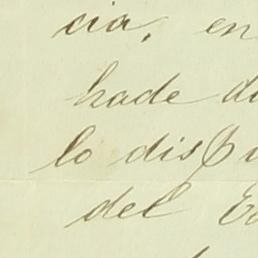 cia, en
hade d
lo disp
del E